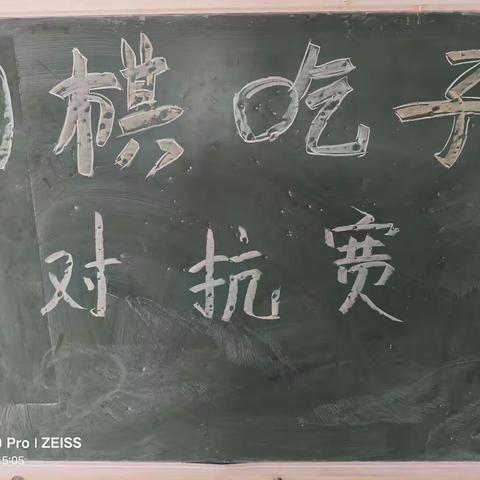 棋吃子
对抗赛
Pro | ZEISS
5:05